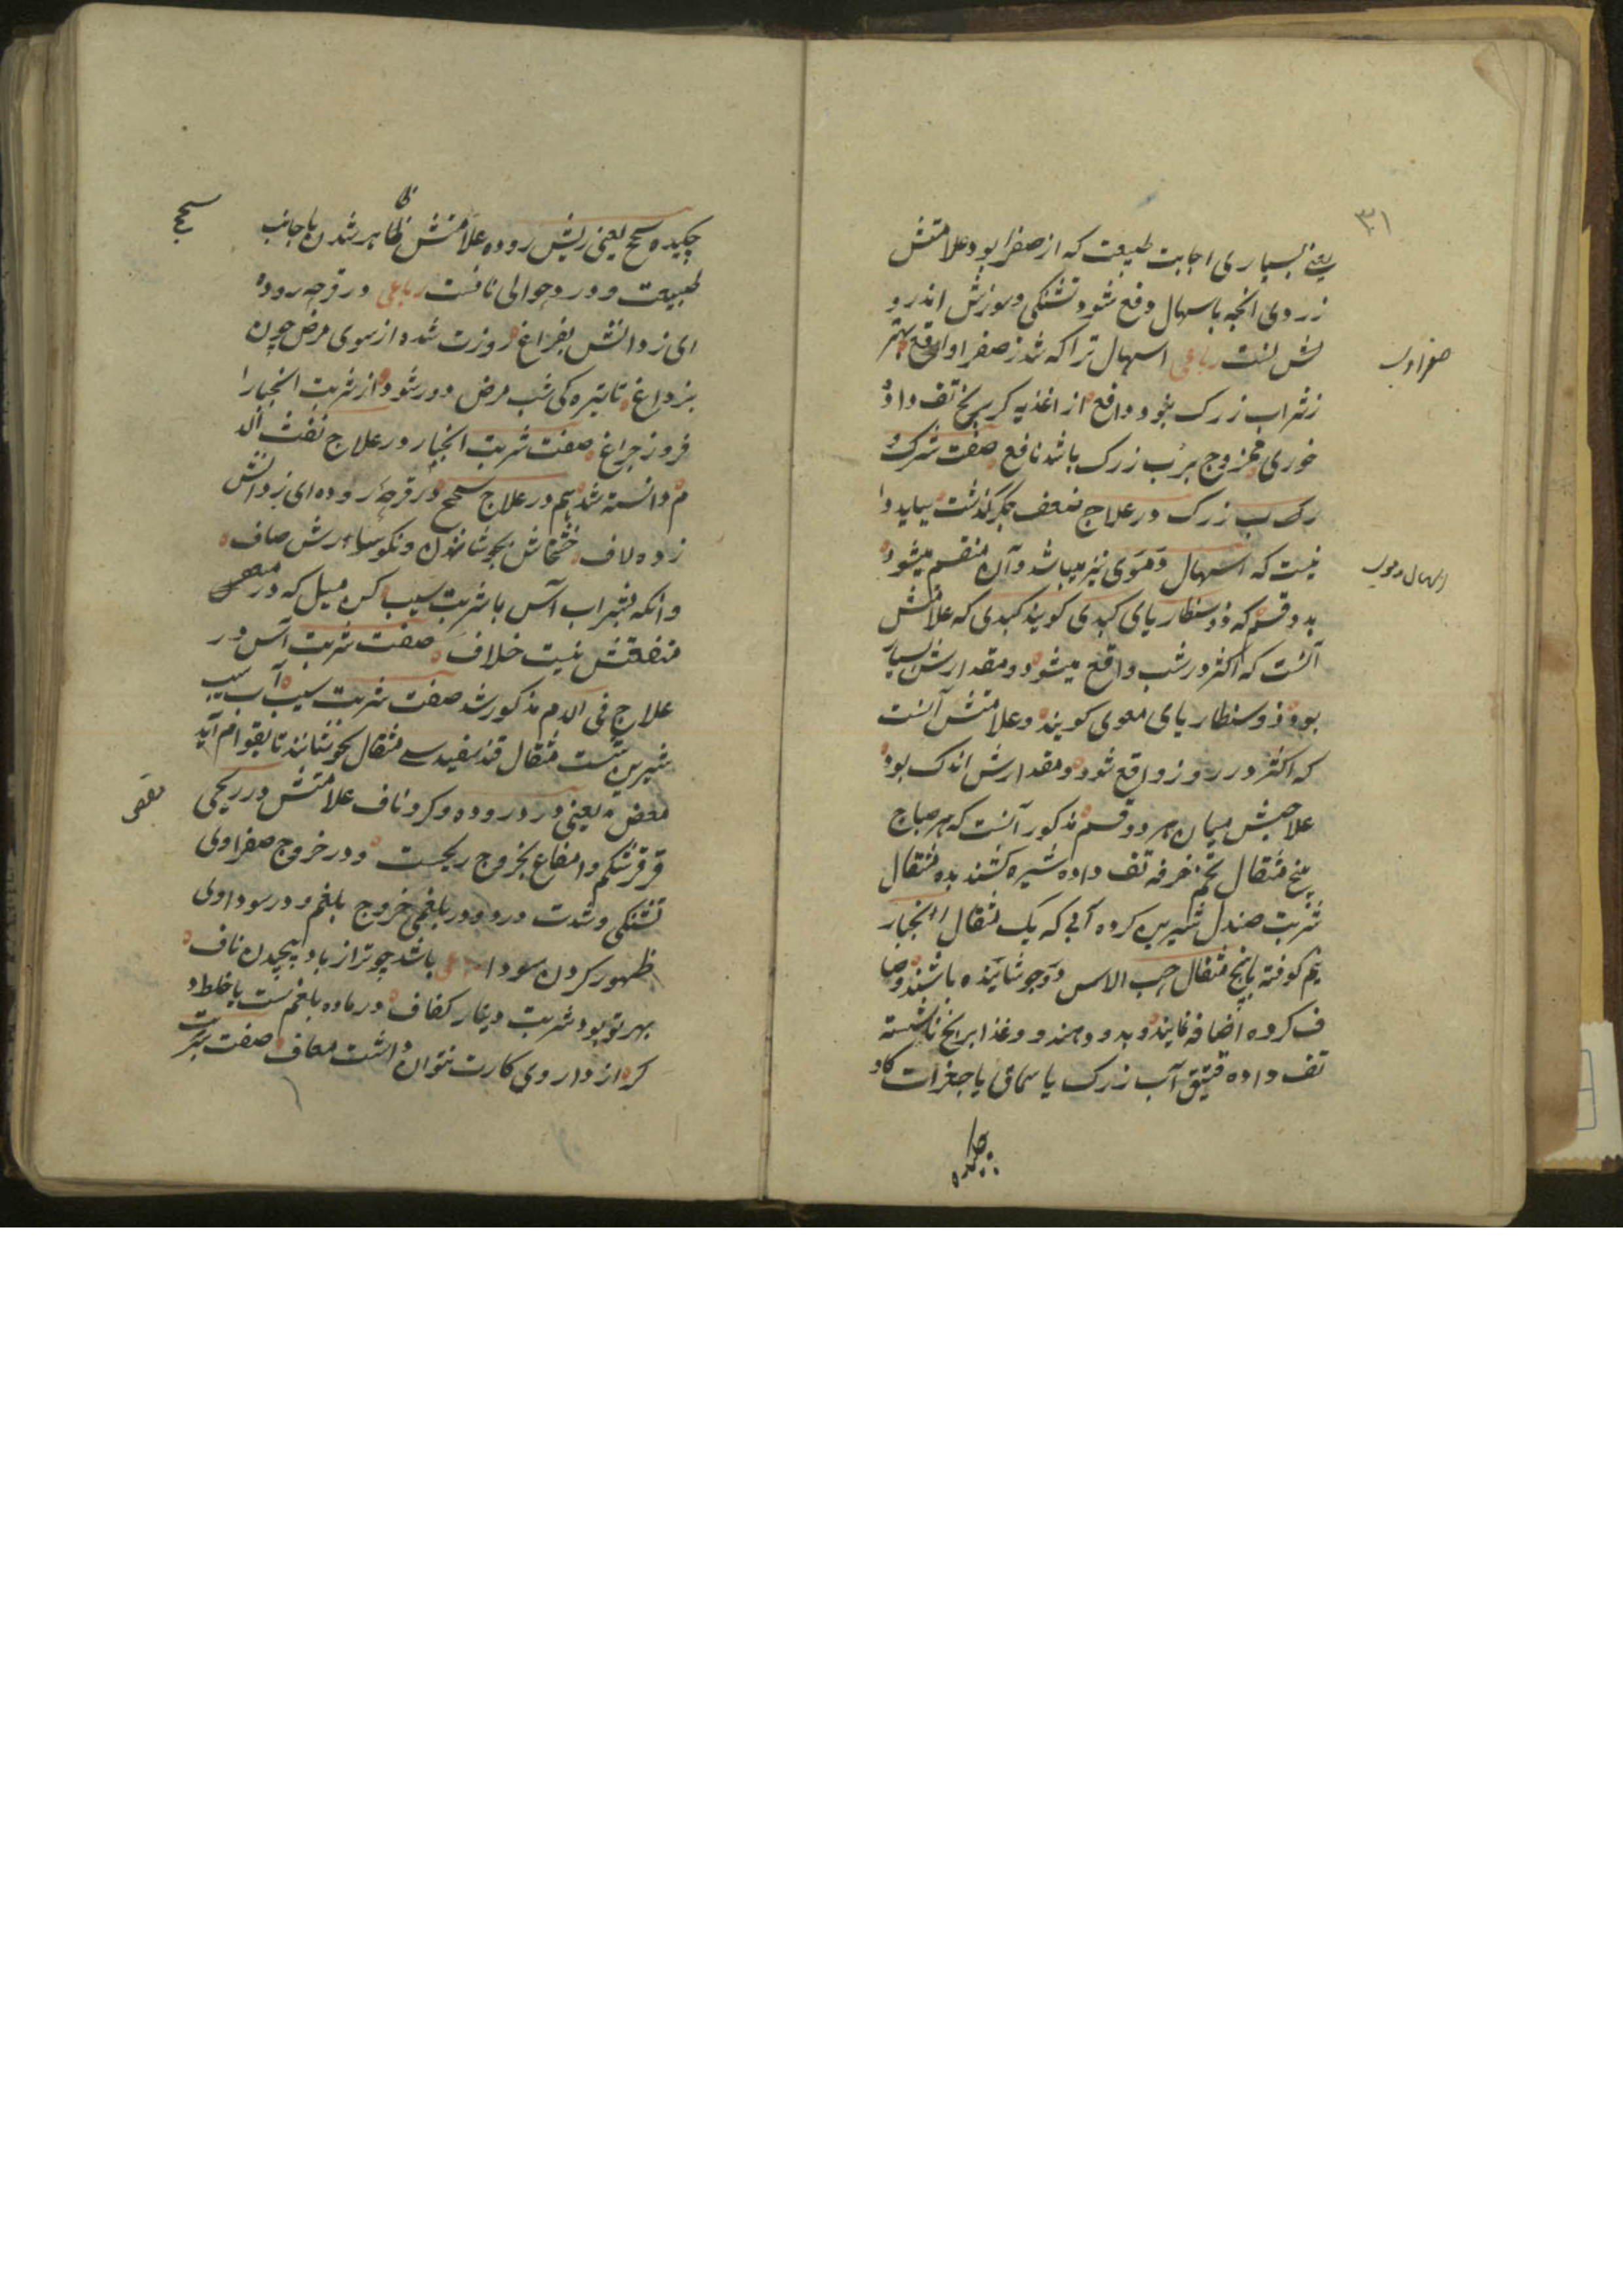 ۳۱
یعنی بسیاری اجابت طبیعت که از صفرا بود علامتش
زردی انچه باسهال دفع شود و تشنگی و سوزش اندرو
صفراوی
نش لست رباعی اسهال ترا که شد ز صفرا واقع بهتر
ز شراب زرک نبود دافع از اغذیه کر برنج تف داده
خوری ممزوج برب زرک باشد نافع صفت شرک
رب زرک در علاج ضعف جگر گذشت بباید دا
اسهال دموی
نیست که اسهال دموی نیز میباشد و آن منقسم میشود
بدو قسم که ذوسنطاریای کبدی کویند کبدی که علامتش
آنست که اکثر در شب واقع میشود و مقدارش بسیار
بود و ذوسنطاریای معوی کویند و علامتش آنست
که اکثر در روز واقع شود و مقدارش اندک بود
علاجش میان هر دو قسم مذکور آنست که هر صباح
پنج مثقال تخم خرفه تف داده شیره کشند بده مثقال
شربت صندل شیرین کرده آبی که یک مثقال انجبار
نیم کوفته با پنج مثقال حب الاس درو جوشانیده باشند و صا
ف کرده اضافه نمایند و بدو دهند و غذا برنج ناشسته
تف داده قتیق آب زرک یا سماق یا جغرات کاو
چکیده
چکیده سحج یعنی ریش روده علامتش ظاهر شدن با جانب
سحج
طبیعت و درد حوالی نافست رباعی در قرحه روده
ای ز دانش بفراغ روزت شده از سوی مرض چون
پر داغ تا تیره کی شب مرض دور شود از شربت انجبار
فروز چراغ صفت شربت انجبار در علاج نفث الد
م دانسته شد هم در علاج سحج در قرحه روده ای ز دانش
زده لاف خشخاش بجوشاندن و نکو سا ورش صاف
وانکه بشراب آس با شربت سیب کن میل که در
منفعتش نیست خلاف صفت شربت آس در
علاج قی الدم مذکور شد صفت شربت سیب آب سیب
شیرین شست مثقال قند سفید سی مثقال بجوشانند تا بقوام آید
مغص
مغص یعنی درد روده و کرد ناف علامتش در ریحی
قرقر شکم و انتفاع بخروج ریحست و در خروج صفراوی
تشنگی و شدت درد و در بلغمی خروج بلغم و در سوداوی
ظهور کردن سودا رباعی باشد چو ترا از باد پیچیدن ناف
بهر تو بود شربت دینار کفاف در ماده بلغم ست یا خلط د
کر از داروی کارت نتوان داشت معاف صفت شربت